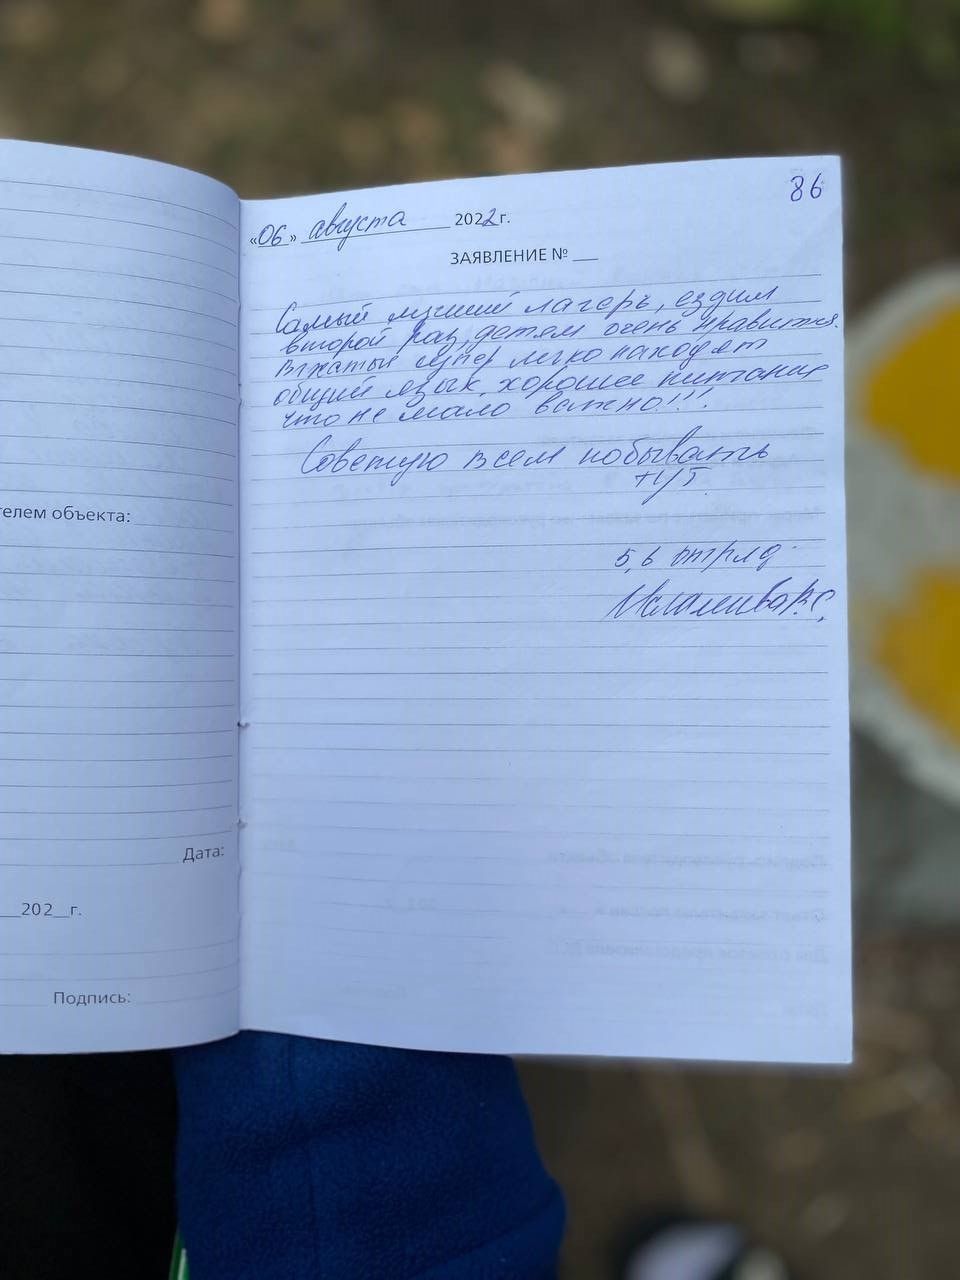 86
«06» августа 2022 г.
ЗАЯВЛЕНИЕ № __
Самый лучший лагерь, ездим
второй раз, детям очень нравится.
Вожатый супер легко находят
общий язык, хорошее питание
что не мало важно!!!
Советую всем побывать
5, 6 отряд.
телем объекта:
Дата:
___202__г.
Подпись: